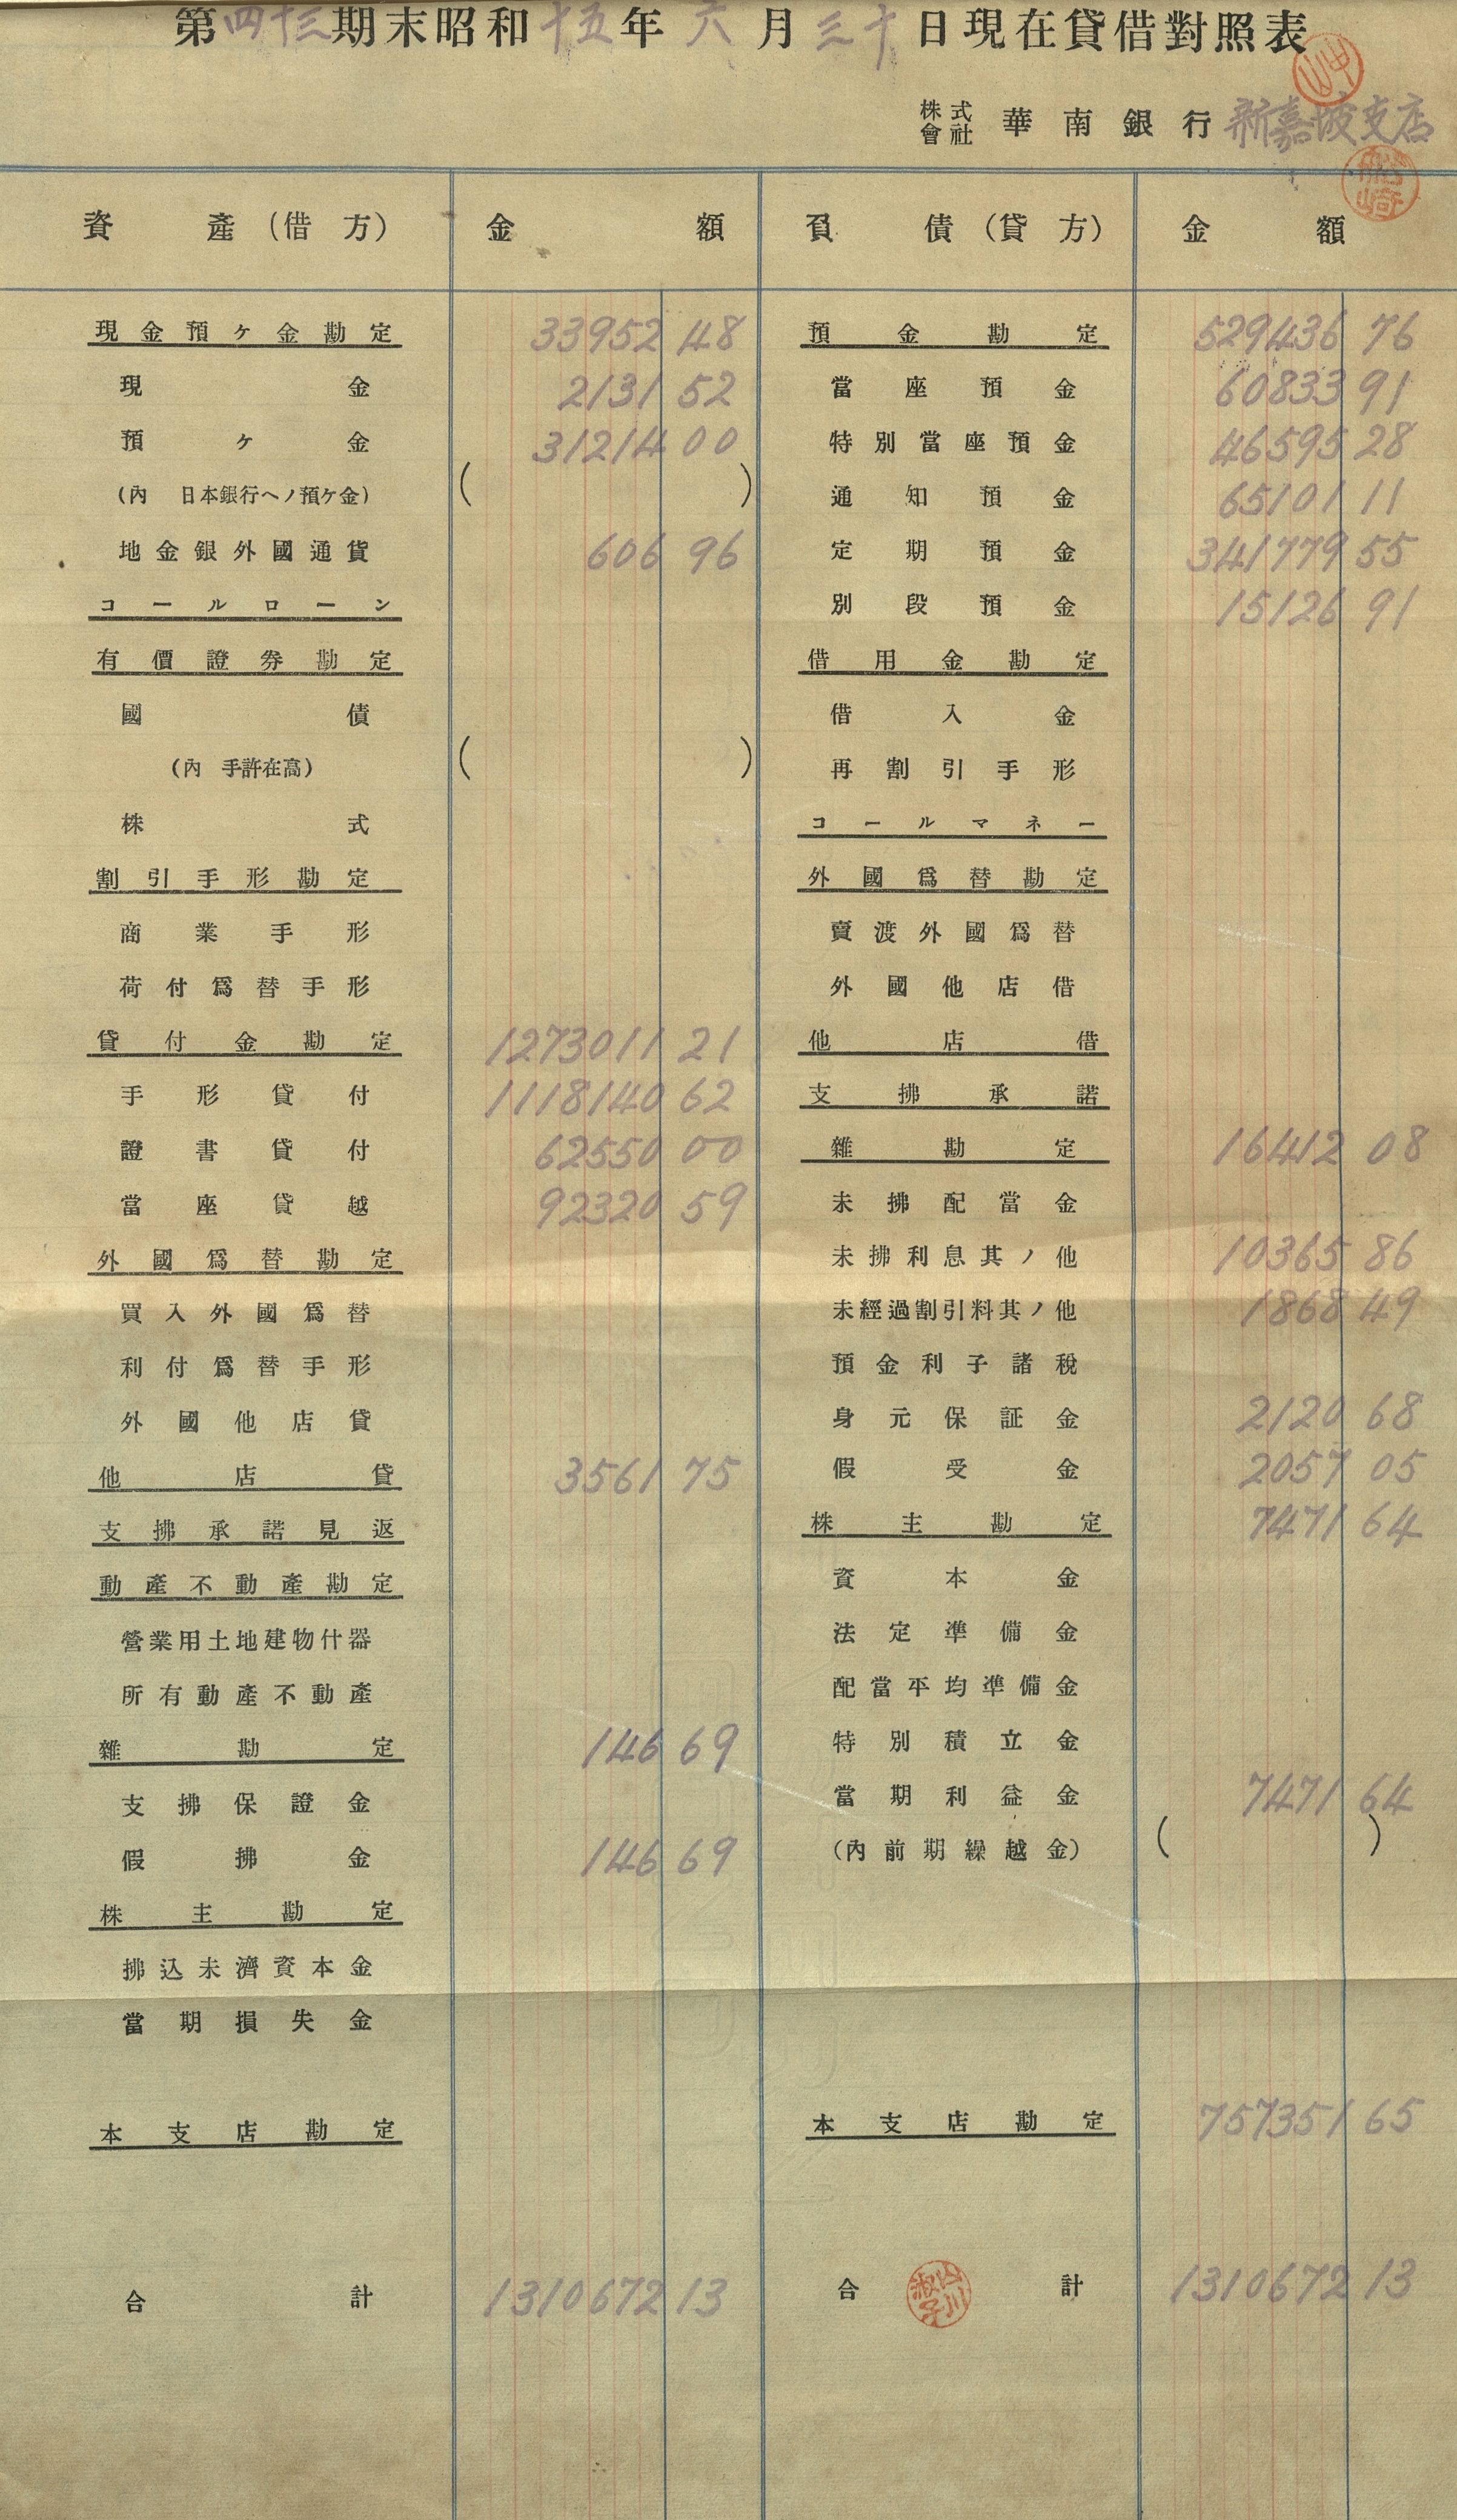 第四十三期末昭和十五年六月三十日現在貸借對照表
株式會社 華南銀行 新嘉坡支店
資產(借方) 金額 負債(貸方) 金額
現金預ヶ金勘定 33952 48 預金勘定 529436 76
現金 2131 52 當座預金 60833 91
預ヶ金 31214 00 特別當座預金 46595 28
(內 日本銀行ヘノ預ケ金) ( ) 通知預金 65101 11
地金銀外國通貨 606 96 定期預金 341779 55
コールローン 別段預金 15126 91
有價證券勘定 借用金勘定
國債 借入金
(內 手許在高) ( ) 再割引手形
株式 コールマネー
割引手形勘定 外國爲替勘定
商業手形 賣渡外國爲替
荷付爲替手形 外國他店借
貸付金勘定 1273011 21 他店借
手形貸付 1118140 62 支拂承諾
證書貸付 62550 00 雜勘定 16412 08
當座貸越 92320 59 未拂配當金
外國爲替勘定 未拂利息其ノ他 10365 86
買入外國爲替 未經過割引料其ノ他 1868 49
利付爲替手形 預金利子諸稅
外國他店貸 身元保証金 2120 68
他店貸 3561 75 假受金 2057 05
支拂承諾見返 株主勘定 7471 64
動產不動產勘定 資本金
營業用土地建物什器 法定準備金
所有動產不動產 配當平均準備金
雜勘定 146 69 特別積立金
支拂保證金 當期利益金 7471 64
假拂金 146 69 (內前期繰越金) ( )
株主勘定
拂込未濟資本金
當期損失金
本支店勘定 本支店勘定 757351 65
合計 1310672 13 合計 1310672 13